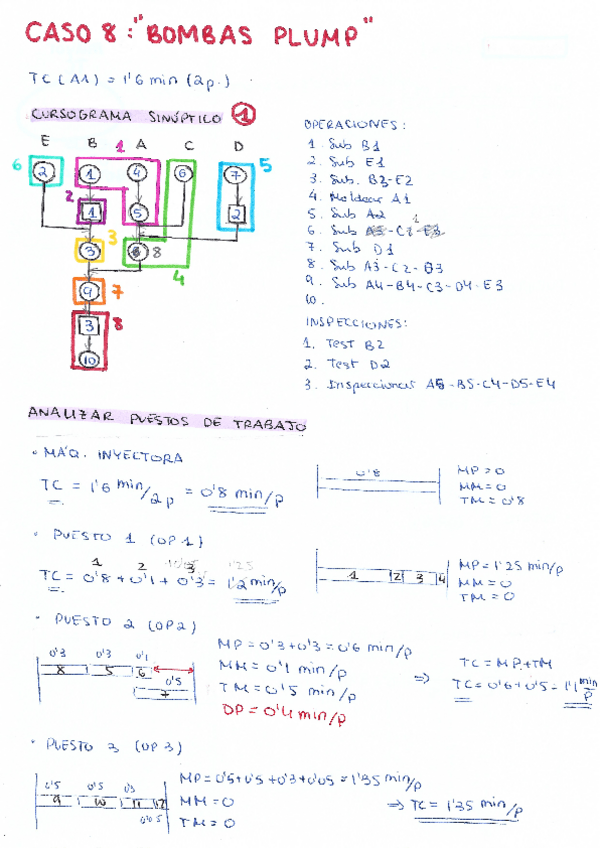 CASO 8: "BOMBAS PLUMP"
TC (A1) = 1'6 min (2p.)
CURSOGRAMA SINÓPTICO 1
E B 1 A C D
6 2 1 4 6 7 5
2 1 5 2
3 3 8 8
4
9 7
3 8
10
OPERACIONES:
1. Sub B1
2. Sub E1
3. Sub. B3-E2
4. Moldear A1
5. Sub A2
6. Sub
7. Sub D1
8. Sub A3-C2-D3
9. Sub A4-B4-C3-D4-E3
10.
INSPECCIONES:
1. Test B2
2. Test D2
3. Inspeccionar A5-B5-C4-D5-E4
ANALIZAR PUESTOS DE TRABAJO
· MÁQ. INYECTORA
TC = 1'6 min/2p = 0'8 min/p
0'8
MP = 0
MM = 0
TM = 0'8
· PUESTO 1 (OP1)
1 2 3
TC = 0'8 + 0'1 + 0'3 = 1'2 min/p
1 2 3 4
MP = 1'25 min/p
MM = 0
TM = 0
· PUESTO 2 (OP2)
0'3 0'3 0'1
8 5 6
0'5
7
MP = 0'3 + 0'3 = 0'6 min/p
MM = 0'1 min/p
TM = 0'5 min/p
DP = 0'4 min/p
⇒ TC = MP + TM
TC = 0'6 + 0'5 = 1'1 min/p
· PUESTO 3 (OP3)
0'5 0'5 0'3
9 10 11 12
0'05
MP = 0'5 + 0'5 + 0'3 + 0'05 = 1'35 min/p
MM = 0
TM = 0
⇒ TC = 1'35 min/p